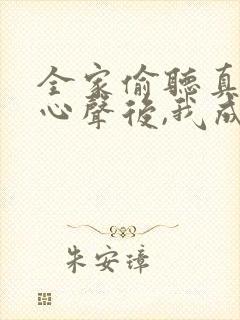 全家偷聽真
心聲後,我成
朱安璋